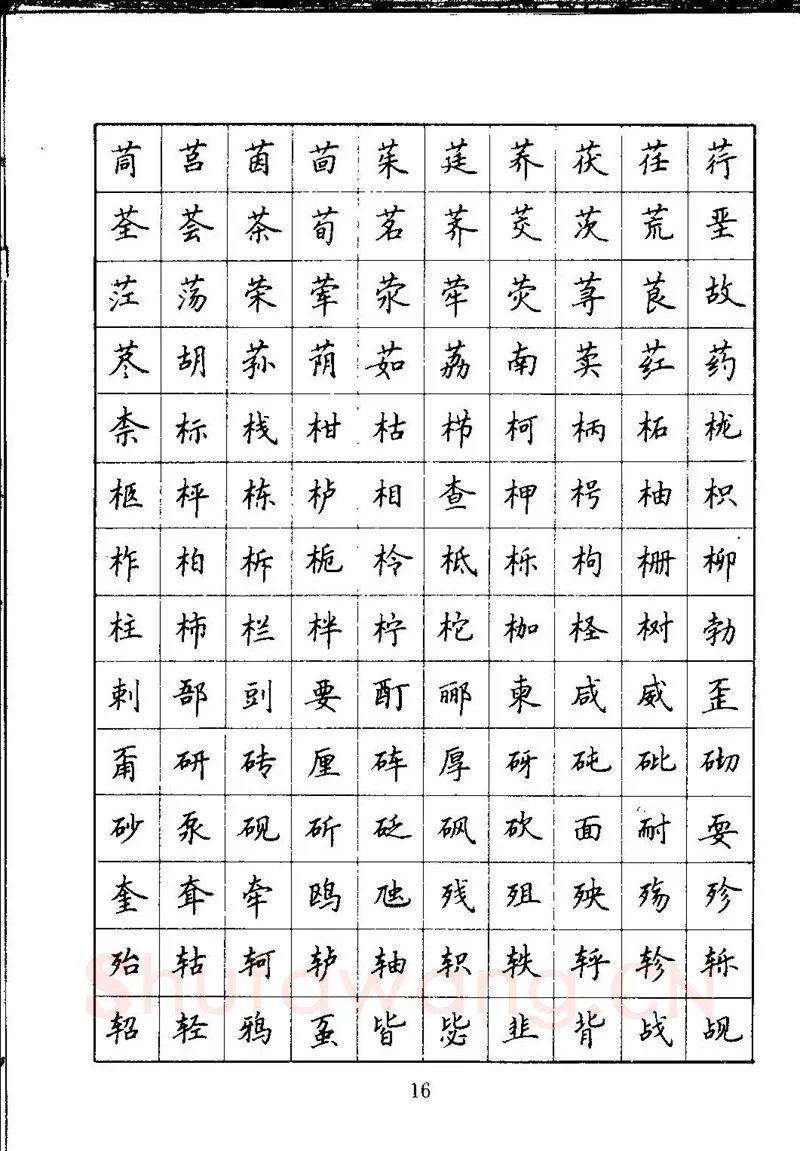 茼 莒 茵 茴 茱 莛 荞 茯 荏 荇
荃 荟 茶 荀 茗 荠 茭 茨 荒 垩
茳 荡 荣 荤 荥 荦 荧 荨 茛 故
荩 胡 荪 荫 茹 荔 南 荬 荭 药
柰 标 栈 柑 枯 栉 柯 柄 柘 栊
柩 枰 栋 栌 相 查 柙 枵 柚 枳
柞 柏 柝 栀 柃 柢 栎 枸 栅 柳
柱 柿 栏 柈 柠 柁 枷 柽 树 勃
剌 郚 剅 要 酊 郦 柬 咸 威 歪
甭 研 砖 厘 砗 厚 砑 砘 砒 砌
砂 泵 砚 斫 砭 砜 砍 面 耐 耍
奎 耷 牵 鸥 虺 残 殂 殃 殇 殄
殆 轱 轲 轳 轴 轵 轶 轷 轸 轹
Shufawang.CN
轺 轻 鸦 虿 皆 毖 韭 背 战 觇
16